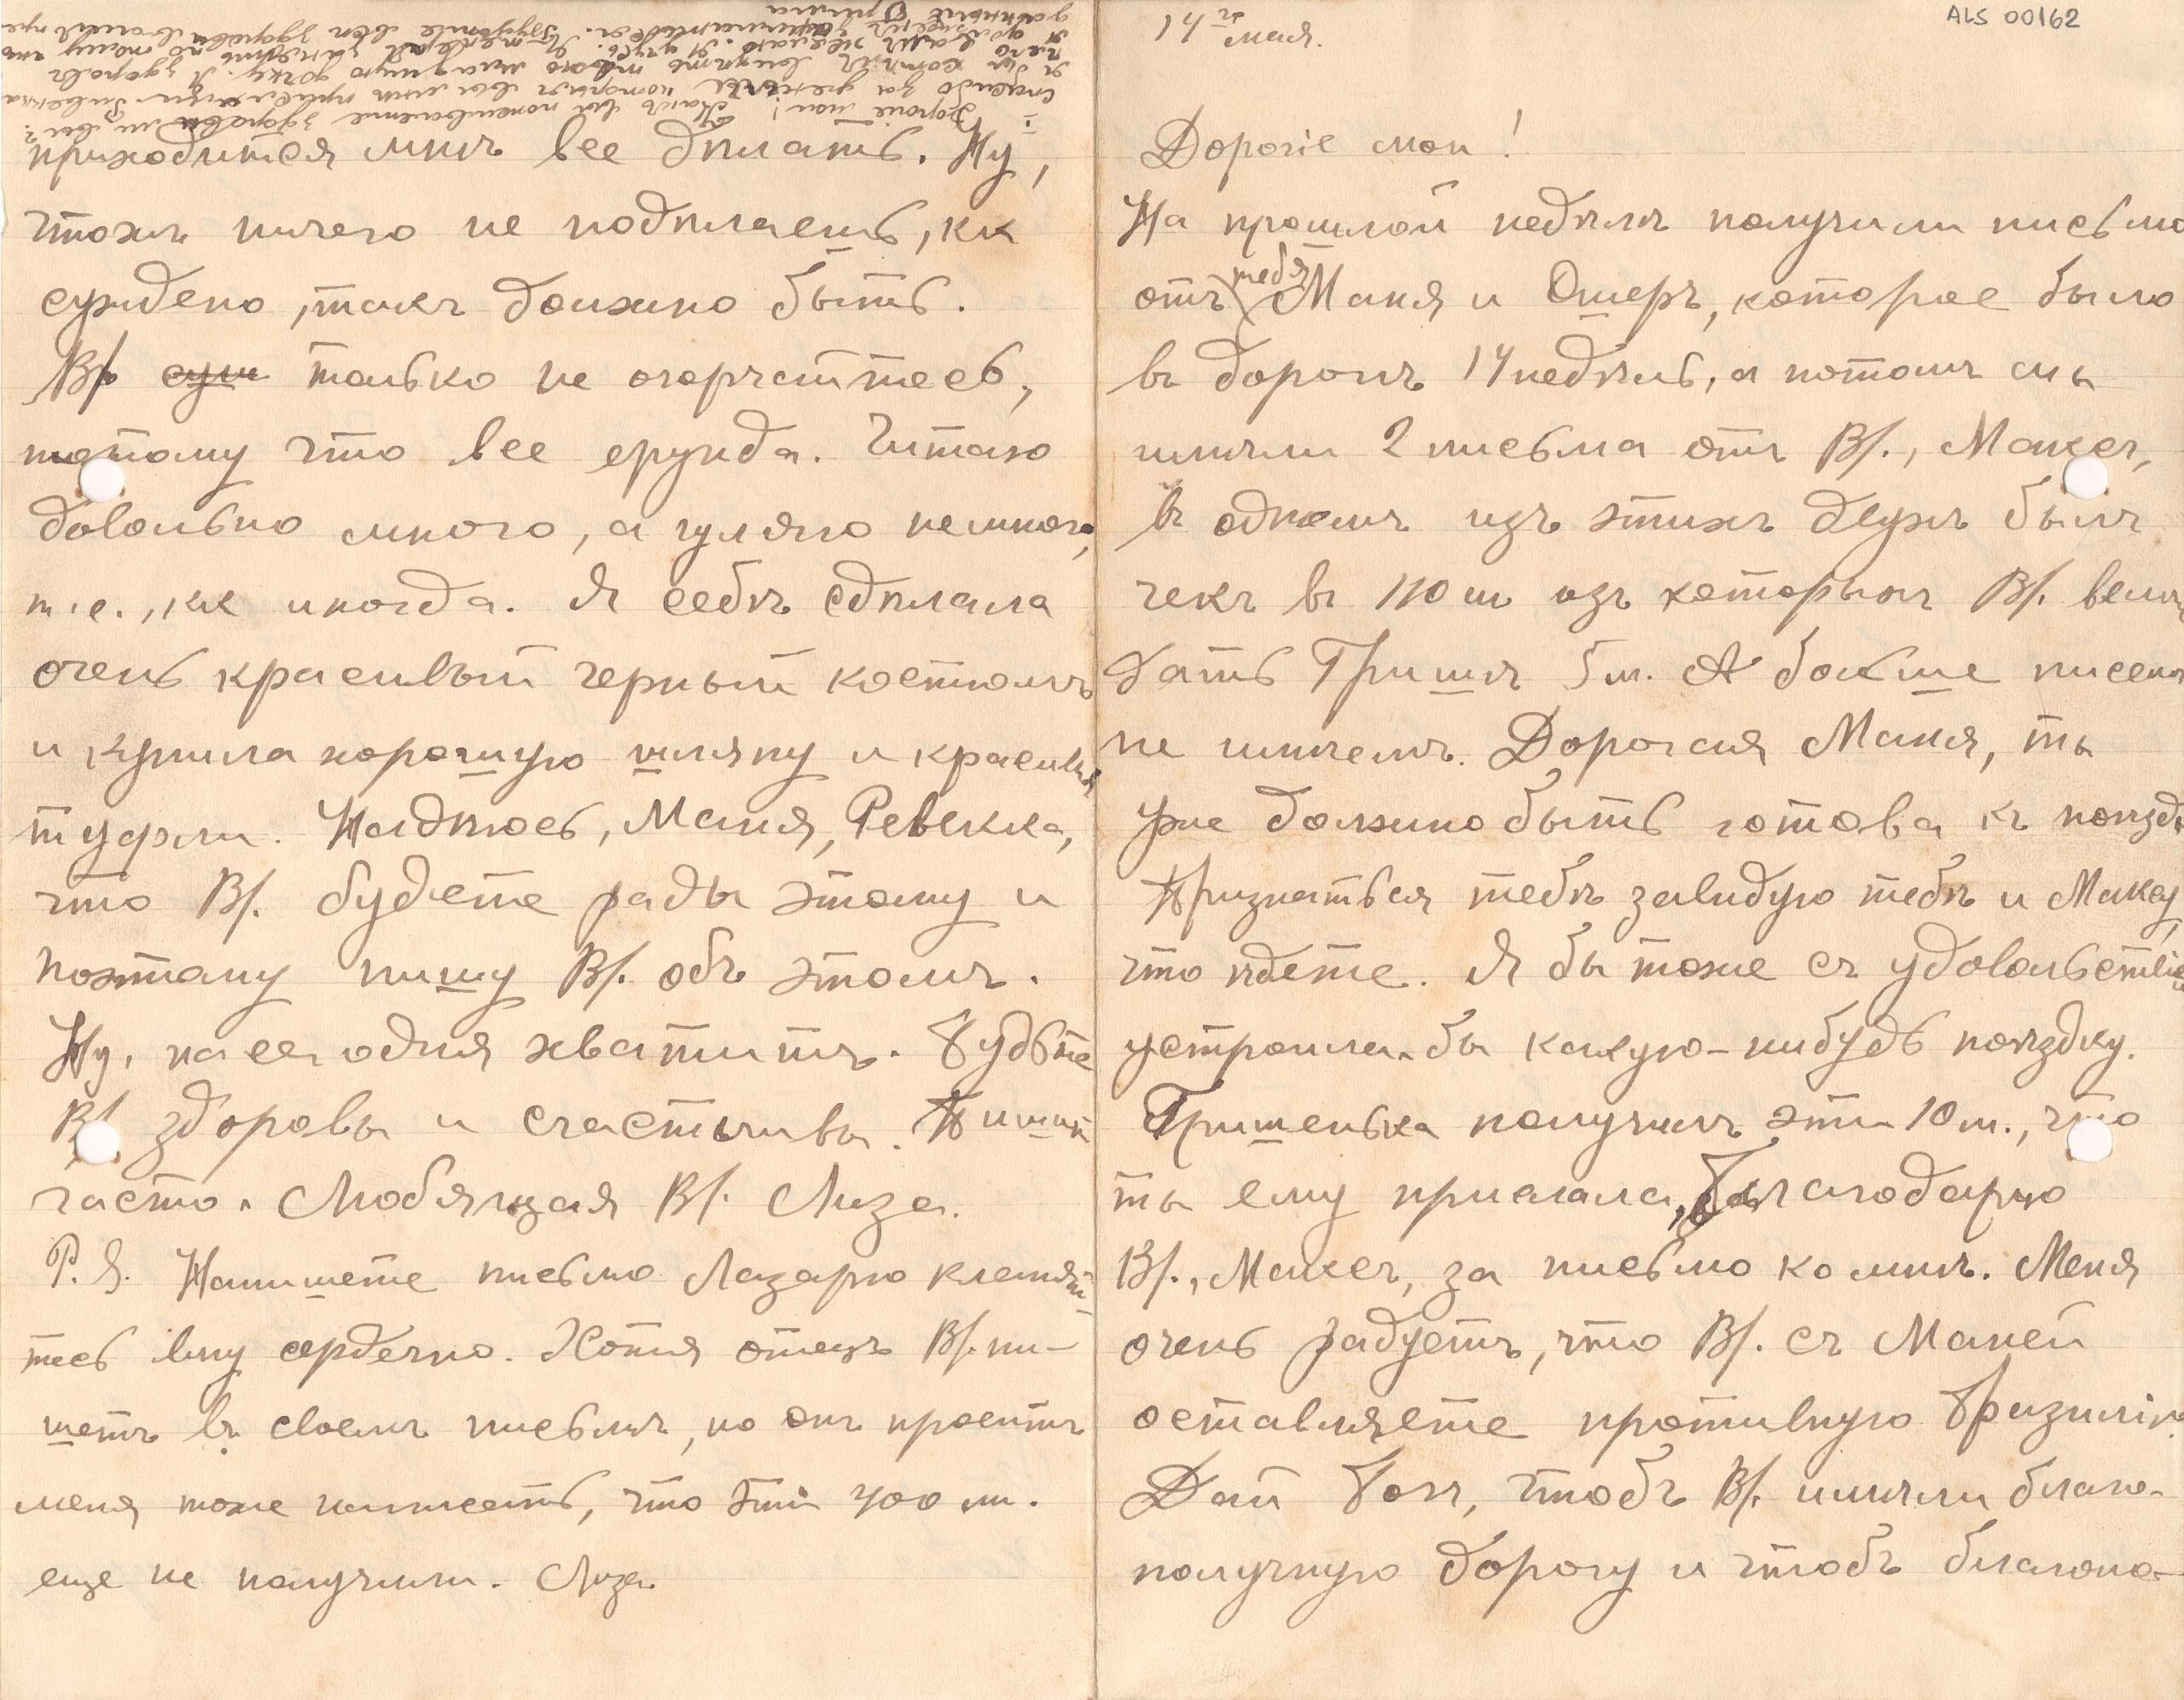 ALS 00162
14го мая.
Дорогiе мои!
На прошлой недѣлѣ получили письмо
отъ тебя Маня и Ошеръ, которое было
въ дорогѣ 14 недѣль, а потомъ мы
имѣли 2 письма отъ Вс., Максъ,
въ одномъ изъ этихъ двухъ былъ
чекъ въ 110 м изъ которыхъ Вс. велѣли
дать Гришѣ 5 м. А больше писемъ
не имѣемъ. Дорогая Маня, ты
уже должно быть готова къ поѣздк
Признаться тебѣ завидую тебѣ и Максу,
что ѣдете. Я бы тоже съ удовольствiем
устроила-бы какую-нибудь поѣздку.
Гришенька получилъ эти 10 м., что
ты ему прислала, благодарю
Вс., Максъ, за письмо ко мнѣ. Меня
очень радуетъ, что Вс. съ Маней
оставляете противную Бразилiю.
Дай Богъ, чтобъ Вс. имѣли благо-
получную дорогу и чтобъ благопо-
приходится мнѣ все дѣлать. Ну,
чтожъ ничего не подѣлаешь, как
суждено, такъ должно быть.
Вс только не огорчайтесь,
потому что все ерунда. Читаю
довольно много, а гуляю немного,
т.е., как иногда. Я себѣ сдѣлала
очень красивый черный костюмъ
и купила хорошую шляпу и красивыя
туфли. Надѣюсь, Маня, Ревекка,
что Вс. будете рады этому и
поэтому пишу Вс. объ этомъ.
Ну, на сегодня хватитъ. Будьте
Вс здоровы и счастливы. Пишите
часто. Любящая Вс. Лиза.
P.S. Напишете письмо Лазарю кланяй-
тесь ему сердечно. Хотя отецъ Вс. пи-
шетъ въ своемъ письмѣ, но онъ проситъ
меня тоже написать, что эти 400 м.
еще не получили. Лиза.
Дорогiе мои! Какъ вы поживаете здоровы ли вы?
спасибо за деньги которыя вы мнѣ прислали
я бы хотѣлъ видѣть твою младшую дочку. Я здоровъ
чего и вамъ желаю. Я учусь.